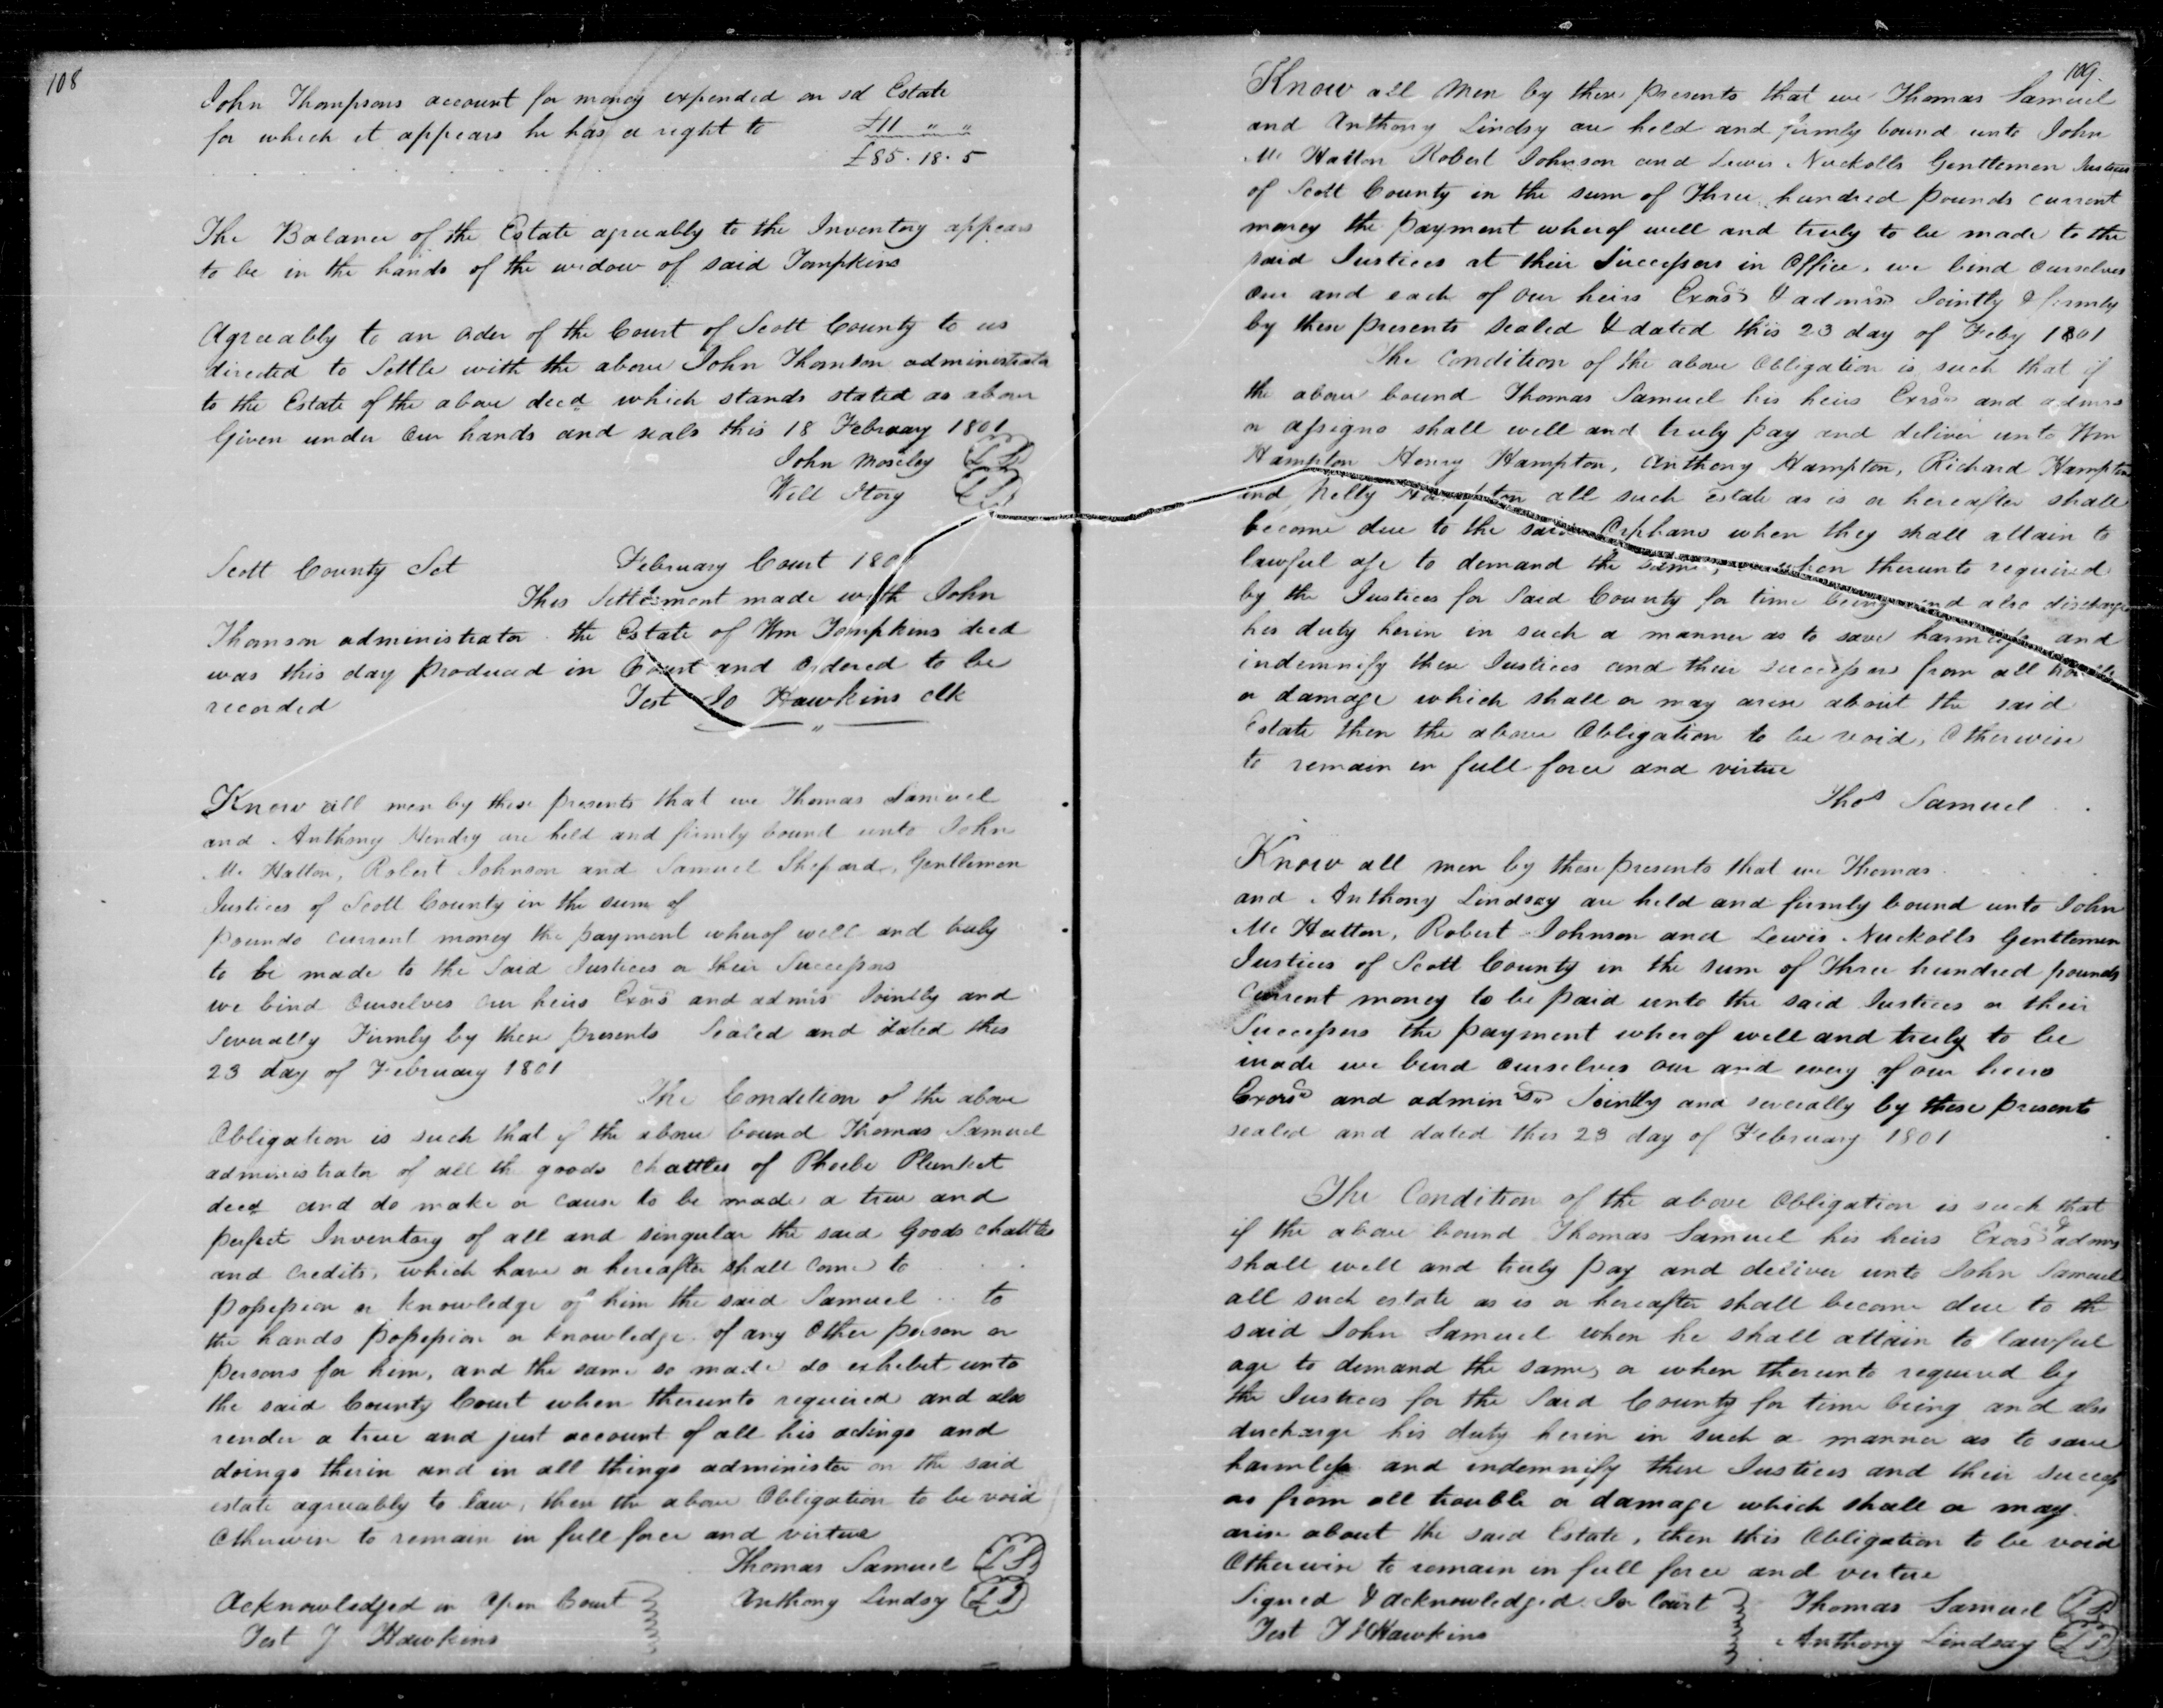 108
John Thompsons account for money expended on sd Estate
for which it appears he has a right to £11 " "
£85.18.5
The Balance of the Estate agreeably to the Inventory appears
to be in the hands of the widow of said Tompkins
Agreeably to an oder of the Court of Scott County to us
directed to Settle with the above John Thomson administrator
to the Estate of the above decd which stands stated as above
Given under our hands and seals this 18 February 1801
John Moseley LS
Will Story LS
Scott County Sct February Court 1801
This Settlement made with John
Thomson administrator the Estate of Wm Tompkins decd
was this day produced in Court and ordered to be
recorded Test Jo Hawkins clk
Know all men by these presents that we Thomas Samuel
and Anthony Hendsy are held and firmly bound unto John
Mc Hatton, Robert Johnson and Samuel Shepard, Gentlemen
Justices of Scott County in the sum of
pounds current money the payment wherof well and truly
to be made to the Said Justices or their Successors
we bind Ourselves our heirs Exors and admrs Jointly and
Severally Firmly by these presents Sealed and dated this
23 day of February 1801
The Condition of the above
Obligation is such that if the above bound Thomas Samuel
administrator of all th goods chattles of Phoebe Plunket
decd and do make or cause to be made a true and
perfect Inventory of all and singular the said Goods chattles
and credits, which have or hereafter shall come to
possession or knowledge of him the said Samuel to
the hands possession or knowledge of any Other person or
persons for him, and the same so made do exhibit unto
the said County Court when therunto required and also
render a true and just account of all his actings and
doings therin and in all things administer on the said
estate agreeably to law, then the above Obligation to be void
Otherwise to remain in full force and virtue
Thomas Samuel LS
Acknowledged in Open Court Anthony Lindsy LS
Test J Hawkins
109.
Know all Men by these presents that we Thomas Samuel
and Anthony Lindsy are held and firmly bound unto John
Mc Hatton Robert Johnson and Lewis Nuckolls Gentlemen Justices
of Scott County in the sum of Three hundred pounds current
money the payment wherof well and truly to be made to the
said Justices at their Successors in Office, we bind Ourselves
our and each of our heirs Exors & admrs Jointly & firmly
by these presents sealed & dated this 23 day of Feby 1801
The Condition of the above Obligation is such that if
the above bound Thomas Samuel his heirs Exrs and admrs
or assigns shall well and truly pay and deliver unto Wm
Hampton Henry Hampton, Anthony Hampton, Richard Hampton
and Nelly Hampton all such estate as is or hereafter shall
become due to the said Orphans when they shall attain to
lawful age to demand the same, or when therunto required
by the Justices for Said County for time being and also discharge
his duty herin in such a manner as to save harmless and
indemnify these Justices and their successors from all trouble
or damage which shall or may arise about the said
Estate then the above Obligation to be void, Otherwise
to remain in full force and virtue
Thos Samuel
Know all men by these presents that we Thomas
and Anthony Lindsay are held and firmly bound unto John
Mc Hatton, Robert Johnson and Lewis Nuckolls Gentlemen
Justices of Scott County in the sum of Three hundred pounds
Current money to be paid unto the said Justices or their
Successors the payment wherof well and truly to be
made we bind ourselves our and every of our heirs
Exors and admins Jointly and severally by these presents
sealed and dated this 23 day of February 1801
The Condition of the above Obligation is such that
if the above bound Thomas Samuel his heirs Exors & admrs
shall well and truly pay and deliver unto John Samuel
all such estate as is or hereafter shall become due to th
said John Samuel when he shall attain to lawful
age to demand the same, or when therunto required by
the Justices for the Said County for time being and also
discharge his duty herin in such a manner as to save
harmless and indemnify these Justices and their success
ors from all trouble or damage which shall or may
arise about the said Estate, then this Obligation to be void
Otherwise to remain in full force and vertue
Signed & acknowledged In Court Thomas Samuel LS
Test J Hawkins Anthony Lindsay LS